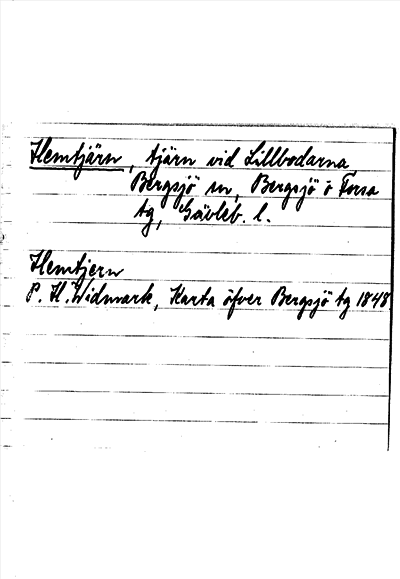 Hemtjärn, tjärn vid Lillbodarna
Bergsjö sn, Bergsjö o Forsa
tg, Gävleb. l.
Hemtjern
P. H. Widmark, Karta öfver Bergsjö tg 1848